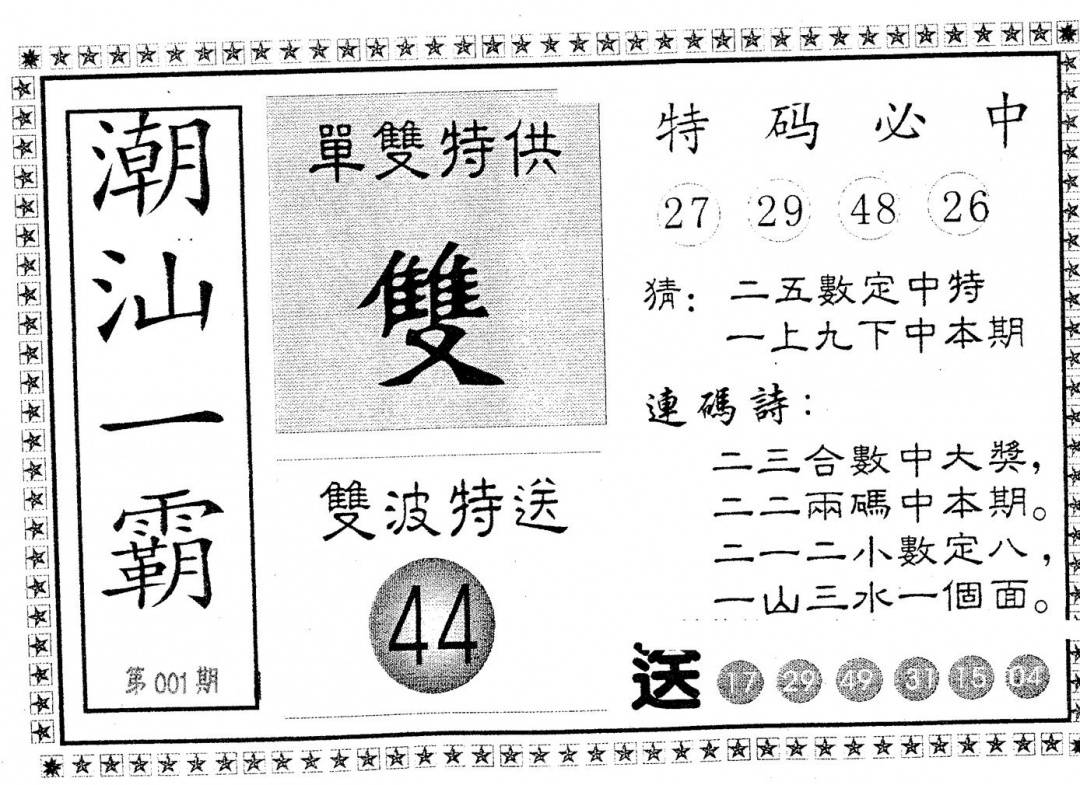 潮汕一霸
第001期
單雙特供
雙
雙波特送
44
特码必中
27 29 48 26
猜：二五數定中特
一上九下中本期
連碼詩：
二三合數中大獎，
二二兩碼中本期。
二一二小數定八，
一山三水一個面。
送 17 29 49 31 15 04